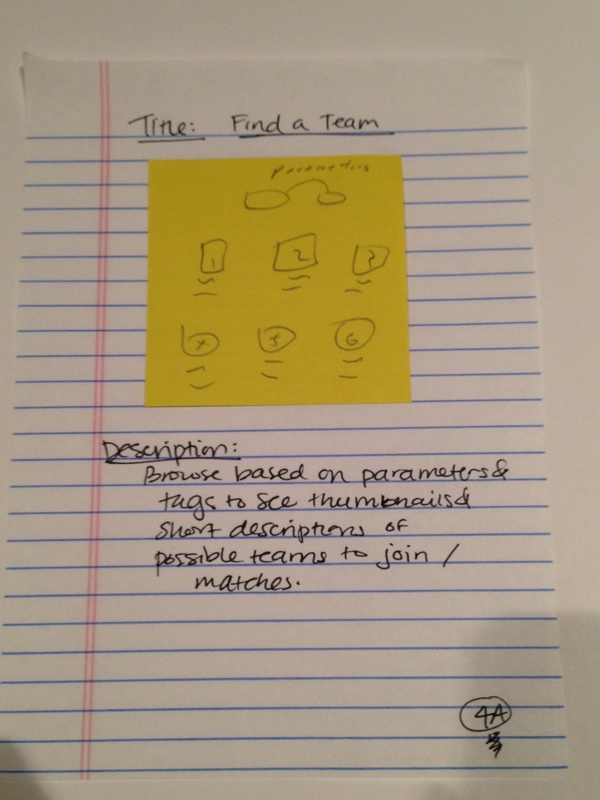 Title: Find a Team
parameters
1 2 3
4 5 6
Description:
Browse based on parameters &
tags to see thumbnails &
short descriptions of
possible teams to join /
matches.
4A